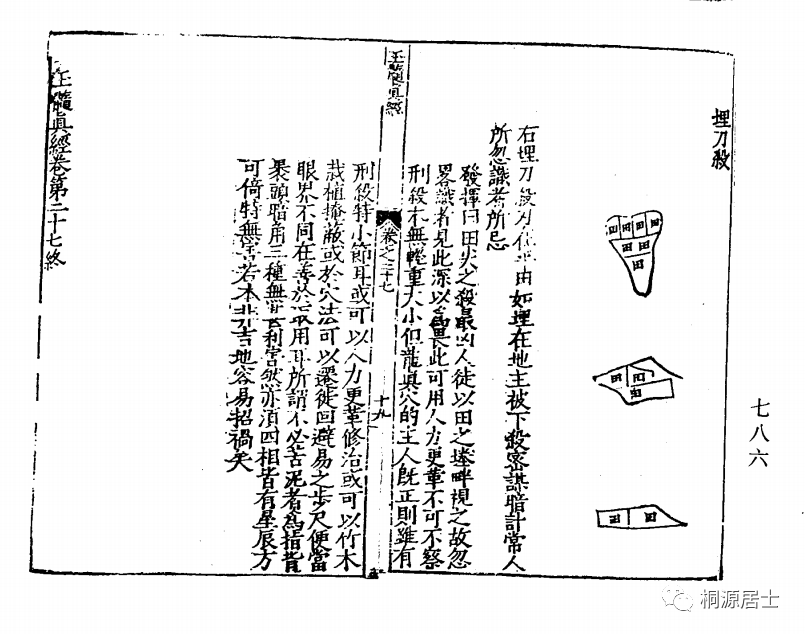 埋刀殺
田田田田
田田
田
田田
田
田田
右埋刀殺刃在平田如埋在地主被下殺密謀暗計常人
所忽識者所忌
發揮曰田尖之殺最凶人徒以田之塍畔視之故忽
畧識者見此深以為畏此可用人力更革不可不察
刑殺本無輕重大小但龍真穴的主人既正則雖有
玉髓真經
卷之二十七
十九
刑殺特小節耳或可以人力更革修治或可以竹木
栽植掩蔽或於穴法可以遷徙回避易之步尺便當
眼界不同在善於取用耳所謂不必苦泥者為指背
裊頭暗角三種無甚利害然亦須四相皆有星辰方
可倚恃無害若本非吉地容易招禍矣
玉髓真經卷第二十七終
七八六
桐源居士